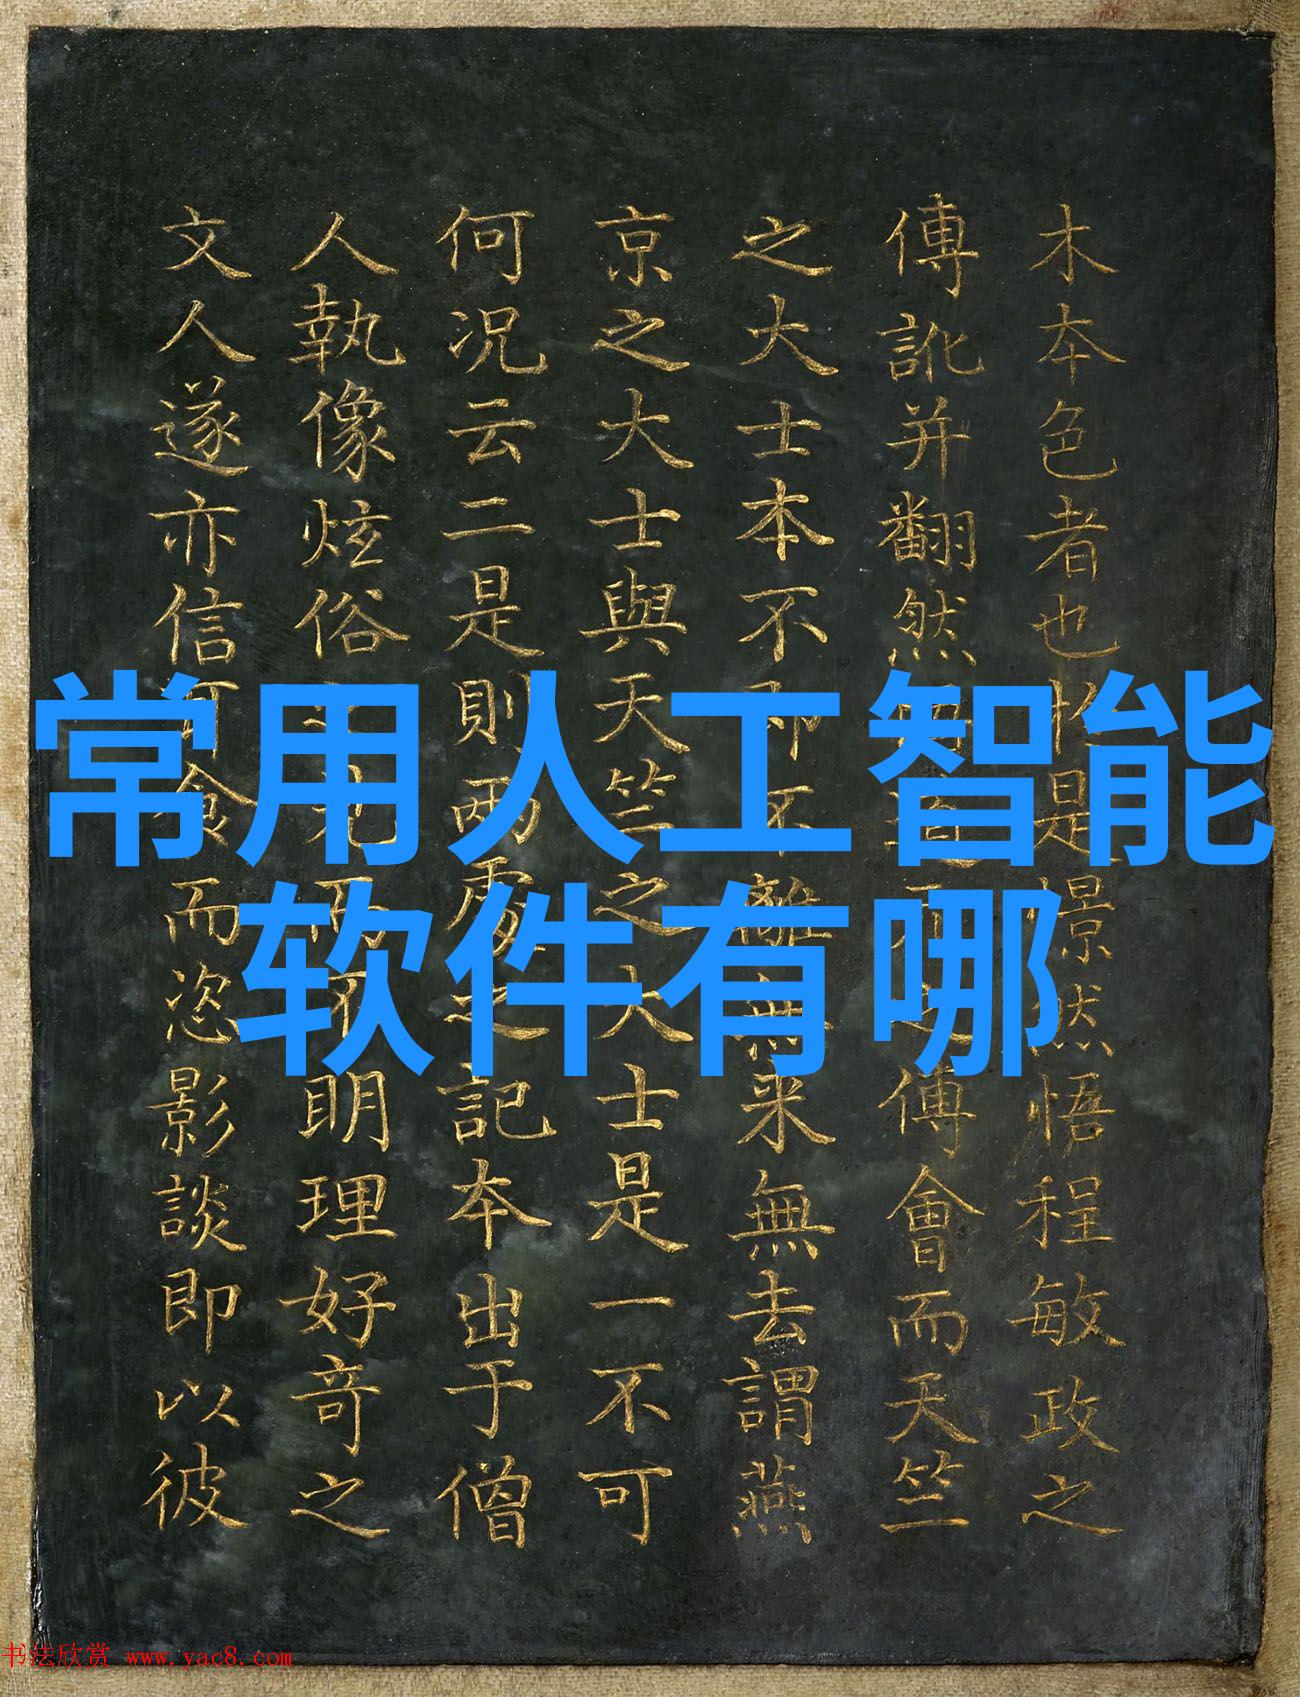 常用人工智能
软件有哪
木夲色者也是憬然悟程敏政之
傳訛并翻然之傅會而天竺
之大士本不即不離無来無去謂燕
京之大士與天竺之大士是一不可
何况云二是則兩處之記夲出于僧
人執像炫俗不明理好奇之
文人遂亦信食而恣影談即以彼
书法欣赏 www.yac8.com